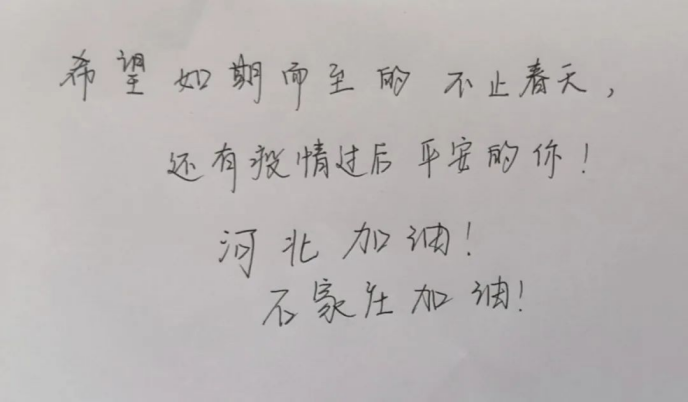 希望如期而至的不止春天，
还有疫情过后平安的你！
河北加油！
石家庄加油！